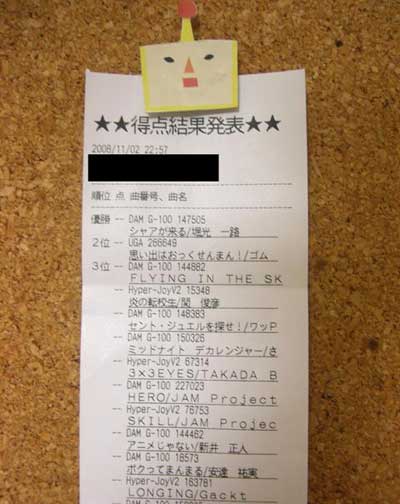 ★★得点結果発表★★
2008/11/02 22:57
順位 点 曲番号、曲名
優勝 -- DAM G-100 147505
シャアが来る/堀光 一路
2位 -- UGA 266649
思い出はおっくせんまん!/ゴム
3位 -- DAM G-100 144882
FLYING IN THE SK
-- Hyper-JoyV2 15348
炎の転校生/関 俊彦
-- DAM G-100 148383
セント・ジュエルを探せ!/ワッP
-- DAM G-100 150326
ミッドナイト デカレンジャー/さ
-- Hyper-JoyV2 67314
3x3EYES/TAKADA B
-- DAM G-100 227023
HERO/JAM Project
-- Hyper-JoyV2 76753
SKILL/JAM Projec
-- DAM G-100 144462
アニメじゃない/新井 正人
-- DAM G-100 18573
ボクってまんまる/安達 祐実
-- Hyper-JoyV2 163781
LONGING/Gackt